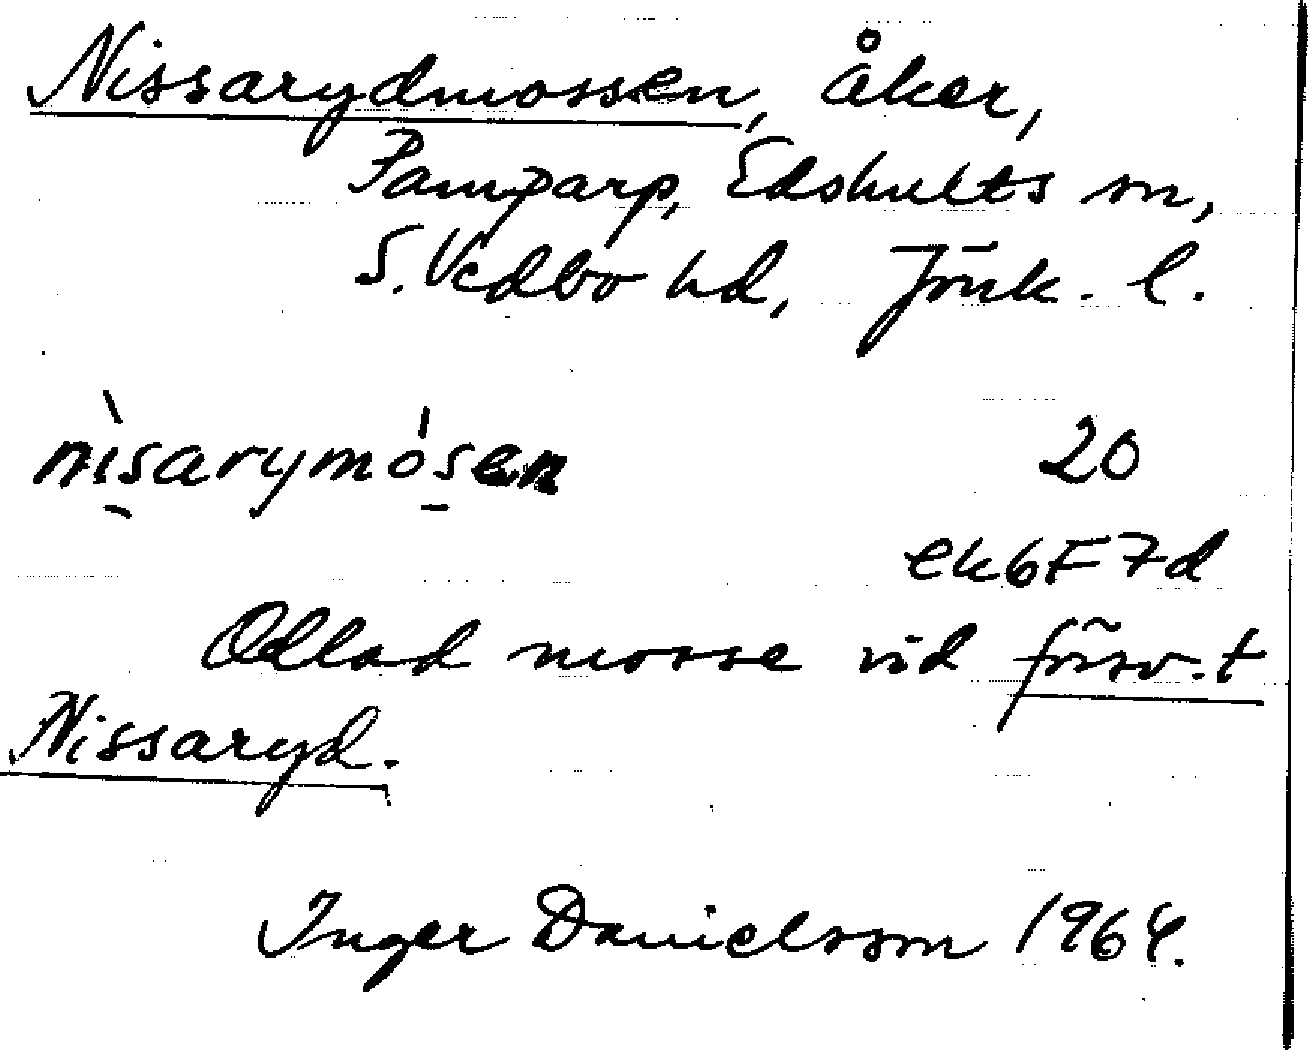 Nissarydmossen, åker,
Pamparp, Edshults sn,
S. Vedbo hd, Jönk. l.
nìsarymósen 20
ek 6F 7d
Odlad mosse vid försv. t
Nissaryd.
Inger Danielsson 1964.